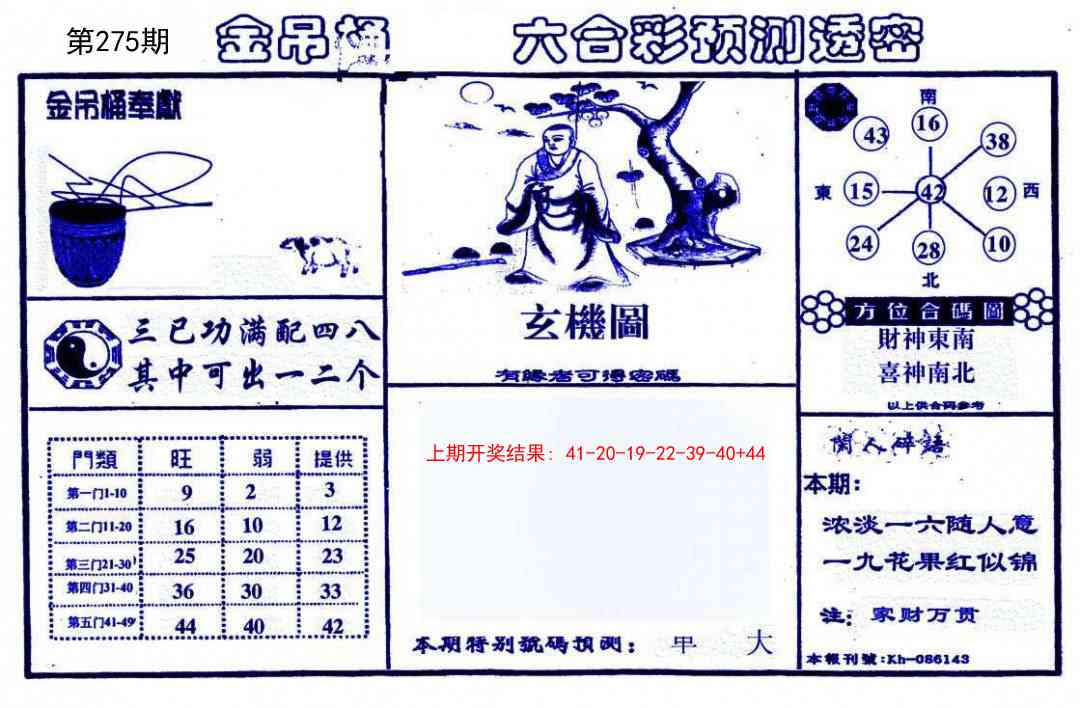 第275期 金吊桶 六合彩预测透密
金吊桶奉獻
三已功满配四八
其中可出一二个
門類 旺 弱 提供
第一门1-10 9 2 3
第二门11-20 16 10 12
第三门21-30 25 20 23
第四门31-40 36 30 33
第五门41-49 44 40 42
玄機圖
有緣者可得密碼
上期开奖结果: 41-20-19-22-39-40+44
本期特别號碼預测: 甲 大
南
43 16 38
東 15 42 12 西
24 28 10
北
方位合碼圖
財神東南
喜神南北
以上供合码参考
閑人碎語
本期:
浓淡一六随人意
一九花果红似锦
注: 家财万贯
本報刊號:Kh-086143